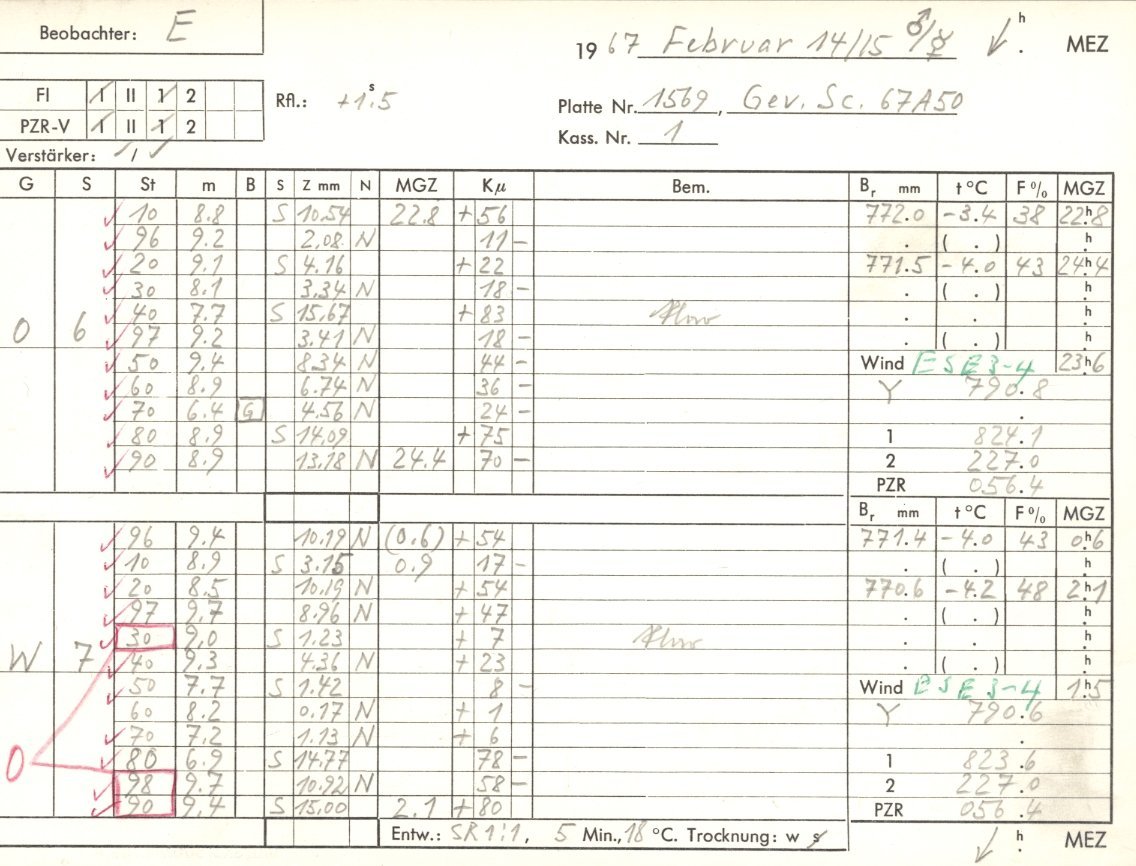 Beobachter: E
19 67 Februar 14/15 ♂/☿ h MEZ
FI I II 1 2 Rfl.: +1.s5
Platte Nr. 1569, Gev. Sc. 67A50
PZR-V I II 1 2
Kass. Nr. 1
Verstärker: /
G S St m B S Z mm N MGZ Kμ Bem. Br mm t °C F % MGZ
10 8.8 S 10.54 22.8 + 56 772.0 -3.4 38 22h8
96 9.2 2.08 N 11 - . ( . ) h
20 9.1 S 4.16 + 22 771.5 -4.0 43 24h4
30 8.1 3.34 N 18 - . ( . ) h
40 7.7 S 15.67 + 83 . . h
O 6 97 9.2 3.41 N 18 - . ( . ) h
50 9.4 8.34 N 44 - Wind ESE 3-4 23h6
60 8.9 6.74 N 36 - Y 790.8
70 6.4 G 4.56 N 24 - .
80 8.9 S 14.09 + 75 1 824.1
90 8.9 13.18 N 24.4 70 - 2 227.0
PZR 056.4
Br mm t °C F % MGZ
96 9.4 10.19 N (0.6) + 54 771.4 -4.0 43 0h6
10 8.9 S 3.15 0.9 17 - . ( . ) h
20 8.5 10.19 N + 54 770.6 -4.2 48 2h1
97 9.7 8.96 N + 47 . ( . ) h
30 9.0 S 1.23 + 7 . . h
W 7 40 9.3 4.36 N + 23 . ( . ) h
50 7.7 S 1.42 8 - Wind ESE 3-4 1h5
60 8.2 0.17 N + 1 Y 790.6
70 7.2 1.13 N + 6 .
O 80 6.9 S 14.77 78 - 1 823.6
98 9.7 10.92 N 58 - 2 227.0
90 9.4 S 15.00 2.1 + 80 PZR 056.4
Entw.: SR 1:1, 5 Min., 18 °C. Trocknung: w s h MEZ